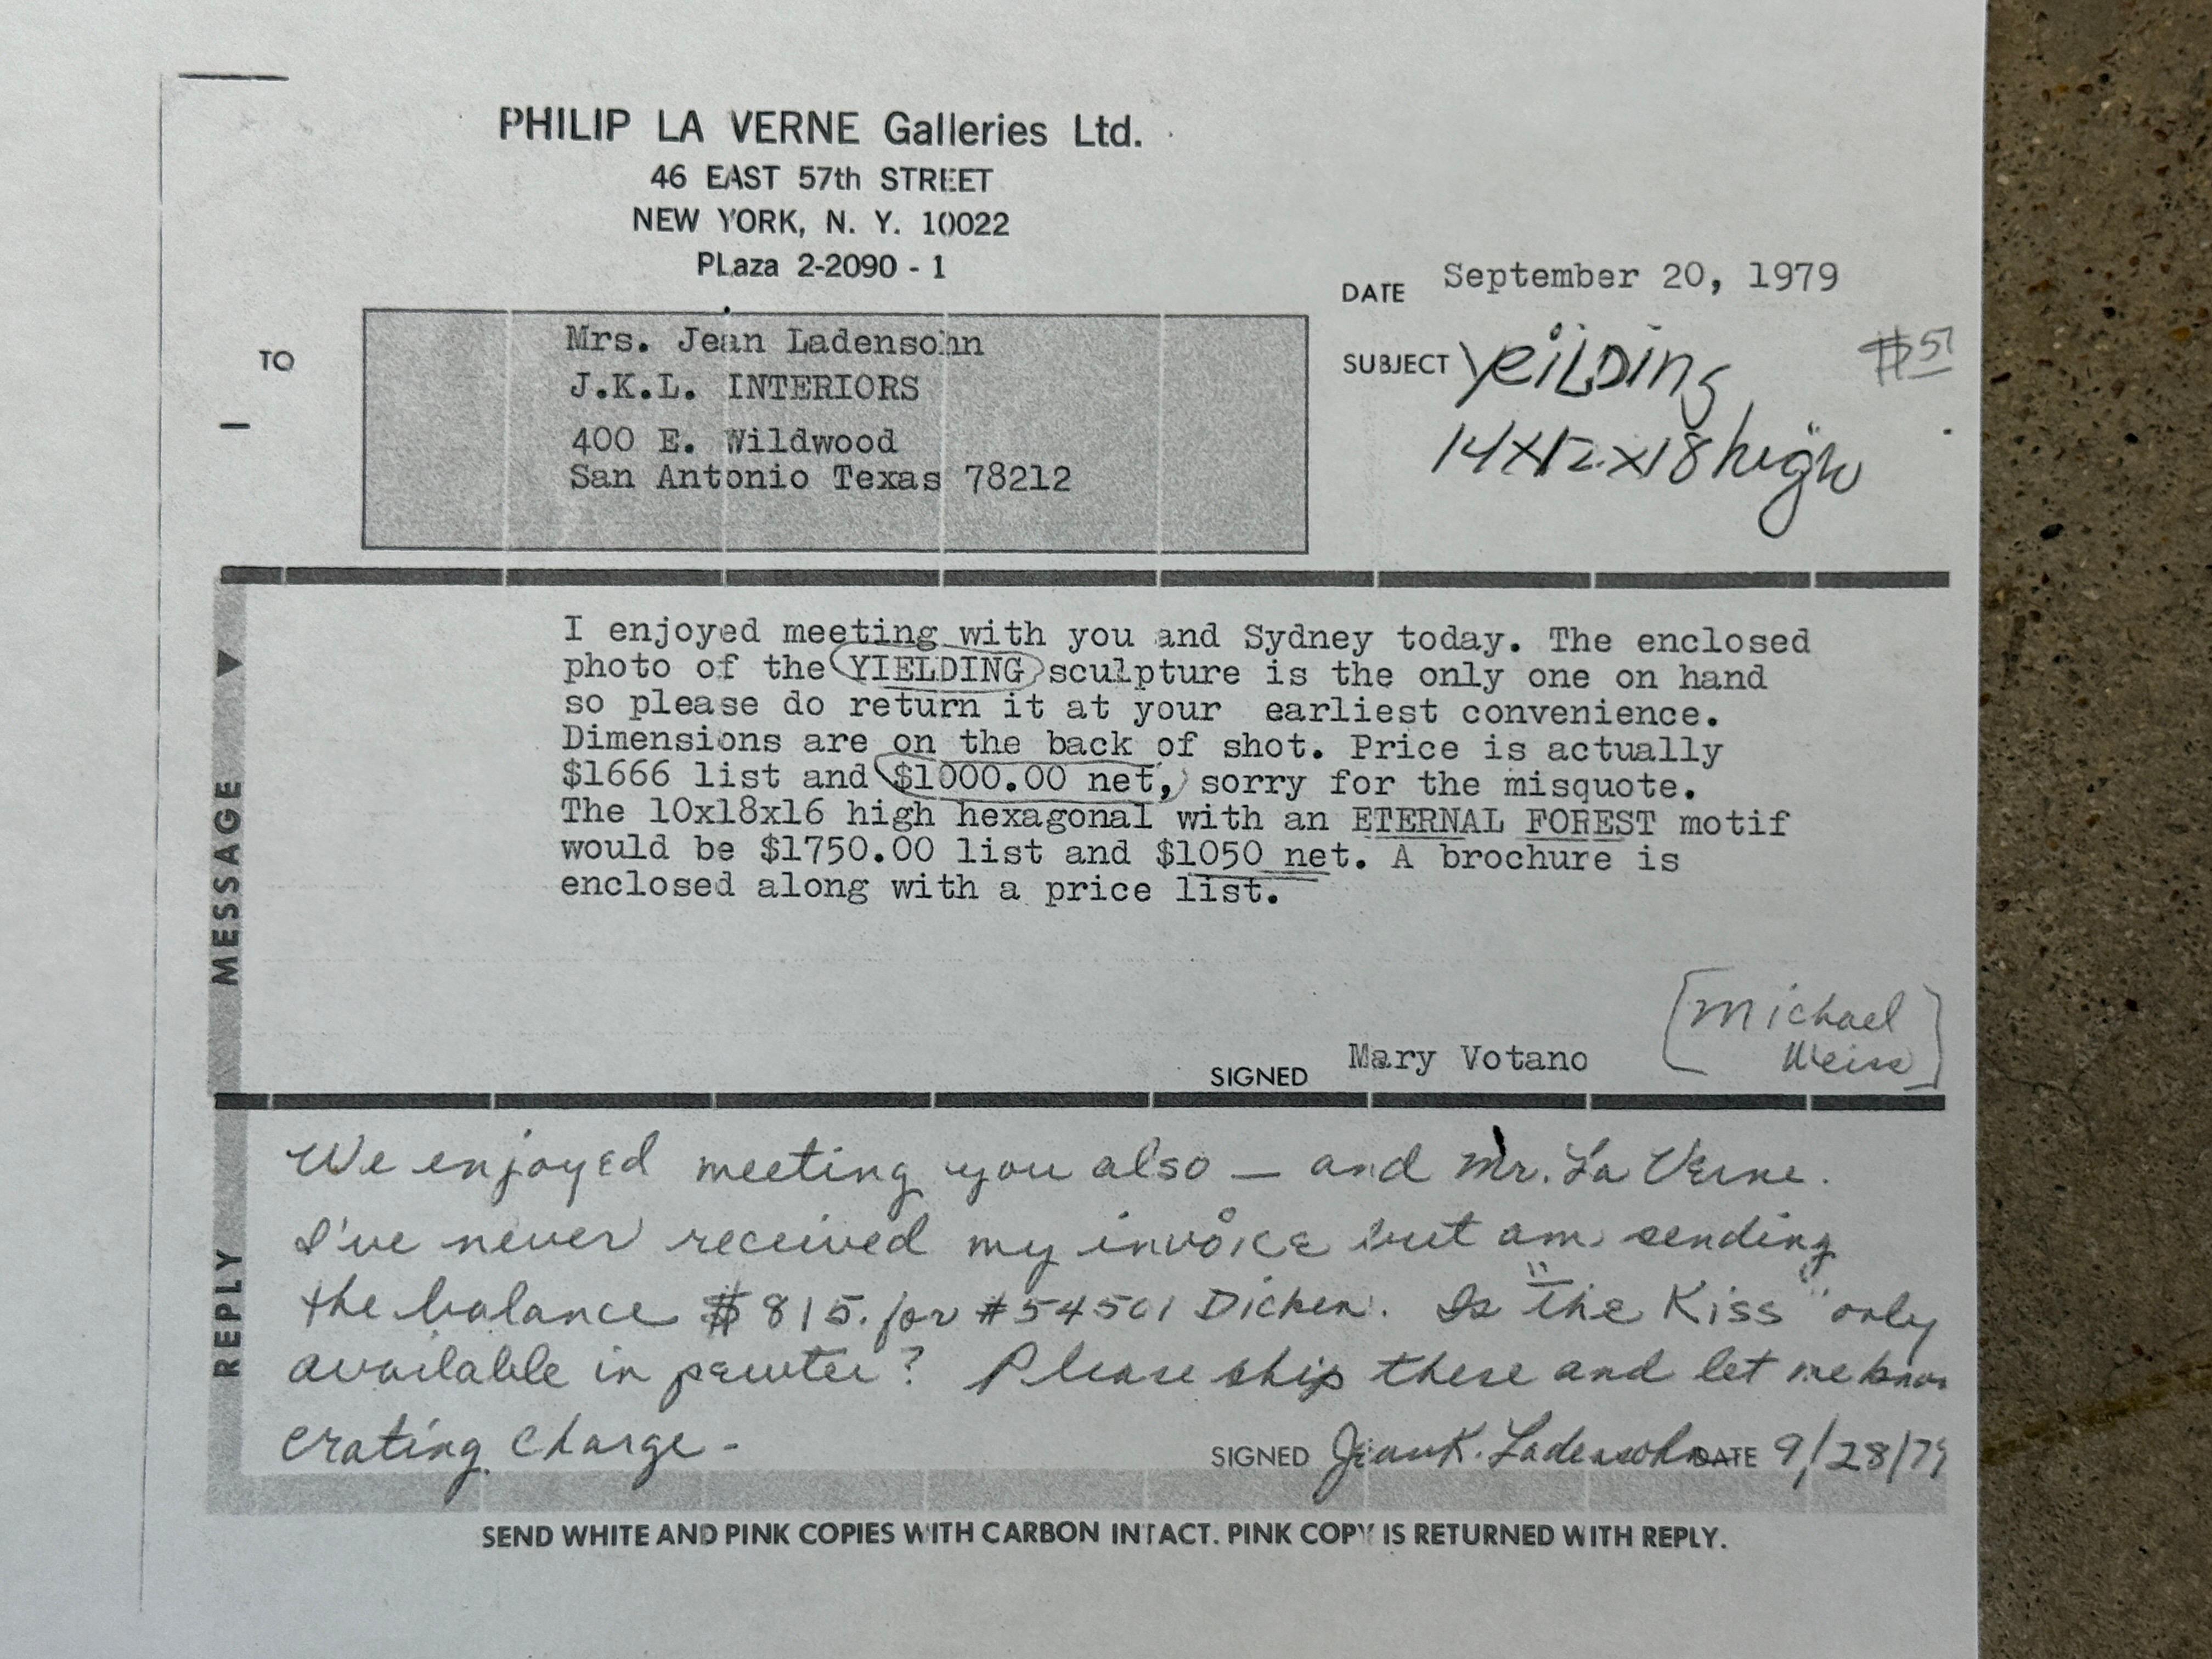 PHILIP LA VERNE Galleries Ltd.
46 EAST 57th STREET
NEW YORK, N. Y. 10022
PLaza 2-2090 - 1
DATE September 20, 1979
TO
Mrs. Jean Ladensohn
J.K.L. INTERIORS
400 E. Wildwood
San Antonio Texas 78212
SUBJECT YEiLDing
14X12X18 high
MESSAGE
I enjoyed meeting with you and Sydney today. The enclosed
photo of the YIELDING sculpture is the only one on hand
so please do return it at your earliest convenience.
Dimensions are on the back of shot. Price is actually
$1666 list and $1000.00 net, sorry for the misquote.
The 10x18x16 high hexagonal with an ETERNAL FOREST motif
would be $1750.00 list and $1050 net. A brochure is
enclosed along with a price list.
SIGNED Mary Votano
[Michael
Weiss]
REPLY
We enjoyed meeting you also — and Mr. La Verne.
I've never received my invoice but am sending
the balance $815. for #54501 Dichen. Is "The Kiss" only
available in pewter? Please ship these and let me know
crating charge -
SIGNED Jean K. Ladensohn DATE 9/28/79
SEND WHITE AND PINK COPIES WITH CARBON INTACT. PINK COPY IS RETURNED WITH REPLY.